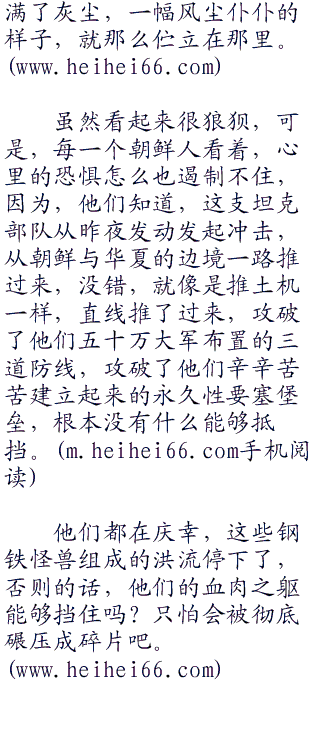 满了灰尘，一幅风尘仆仆的
样子，就那么伫立在那里。
(www.heihei66.com)
虽然看起来很狼狈，可
是，每一个朝鲜人看着，心
里的恐惧怎么也遏制不住，
因为，他们知道，这支坦克
部队从昨夜发动发起冲击，
从朝鲜与华夏的边境一路推
过来，没错，就像是推土机
一样，直线推了过来，攻破
了他们五十万大军布置的三
道防线，攻破了他们辛辛苦
苦建立起来的永久性要塞堡
垒，根本没有什么能够抵
挡。(m.heihei66.com手机阅
读)
他们都在庆幸，这些钢
铁怪兽组成的洪流停下了，
否则的话，他们的血肉之躯
能够挡住吗？只怕会被彻底
碾压成碎片吧。
(www.heihei66.com)